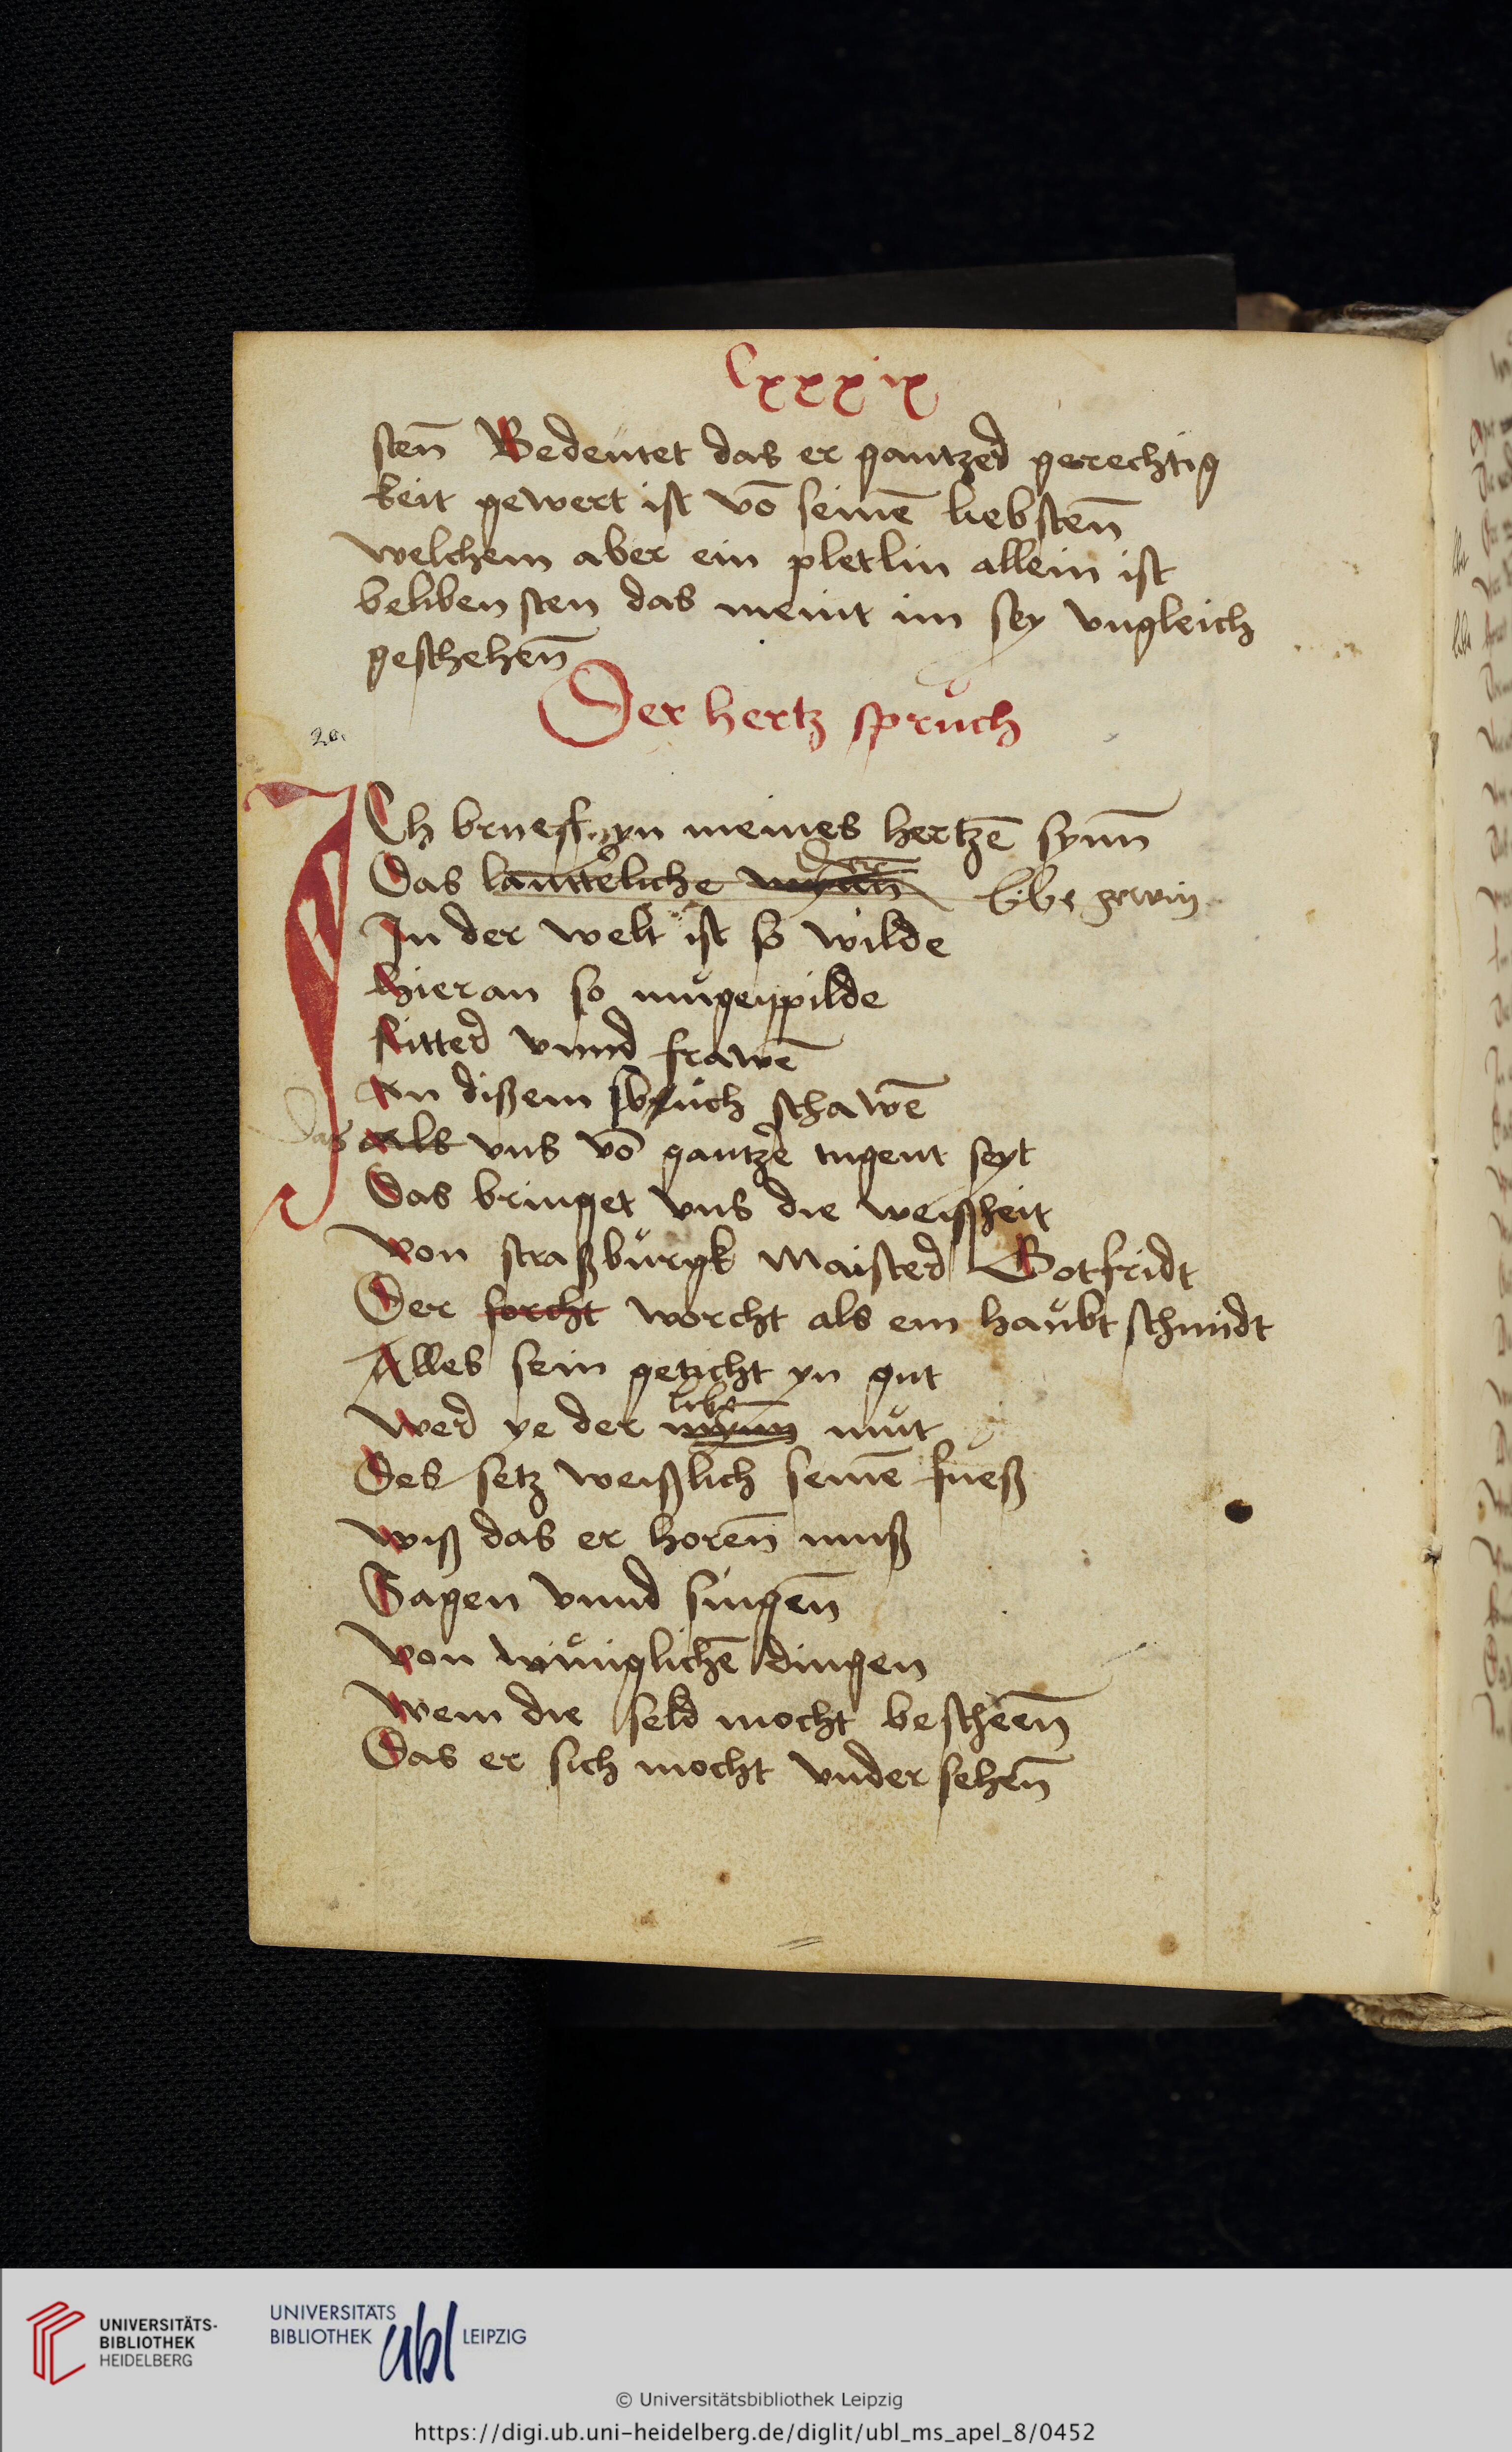 Cxxxix
sten̄ Bedeutet das er gantzer gerechtig
keit gewert ist vō seinē liebsten̄
welchem aber ein pletlin allein ist
beliben sten das meint im sey vngleich
geschehen̄
Der hertz sprůch
20.
ICh brueff yn meines hertzē synn̄
Das lauttěliche wȳnn libe gewin
In der welt ist so wilde
hieran so mugen pilde
Ritter vnnd frawē
An dißem sbruch schawē
Das Als vns vō gantzē tugent seyt
Das bringet vns die weißheit
Von straßburgk Maister Gotfridt
Der forcht worcht als ein haůbt schmidt
Alles sein geticht yn gut
libe
Wer ye der mynn můt
Des setz weißlich seinē fueß
Wiß das er horen̄ muß
Sagen vnnd singen̄
Von winiglichē dingen
Wem die seld mocht bescheen̄
Das er sich mocht vnder sehen̄
UNIVERSITÄTS-
BIBLIOTHEK
HEIDELBERG
UNIVERSITÄTS
BIBLIOTHEK ubl LEIPZIG
© Universitätsbibliothek Leipzig
https://digi.ub.uni-heidelberg.de/diglit/ubl_ms_apel_8/0452